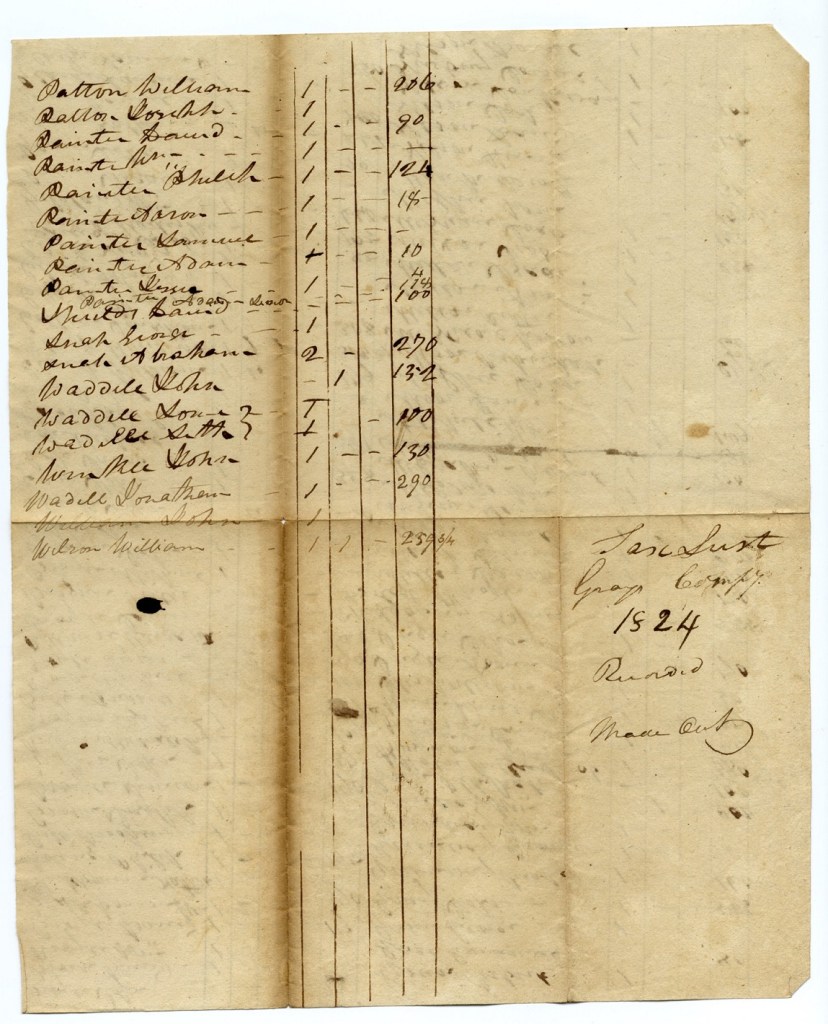 Patton William 1 - - 206
Patton Joseph - 1
Painter David - 1 - - 90
Painter Wm - - - - 1
Painter Phileh - 1 - - 124
Painter Aaron - - - 1 - - 18
Painter Samuel 1 - - -
Painter Adam - + 10
Painter Jessee 1
Painter Adam - Senior
Shields David - - - 100
Snah George - 1
Snah Abraham - 2 - 270
Waddill John - 1 132
Waddill 1 - 100
Waddill Seth
John 1 - - 130
Wadill Jonathan - 1 - - 290
John 1
Wilson William - - 1 1 -
Tax List
Grays Compy.
1824
Recorded
Made Out